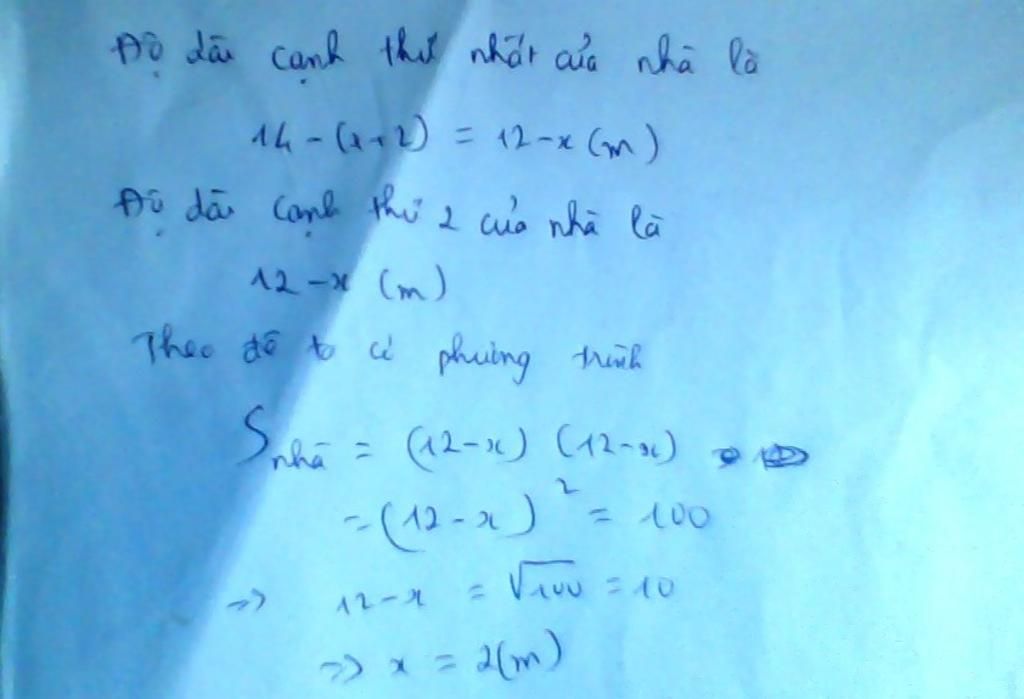 Độ dài cạnh thứ nhất của nhà là
14 - (x+2) = 12-x (m)
Độ dài cạnh thứ 2 của nhà là
12-x (m)
Theo đề ta có phương trình
S nhà = (12-x) (12-x)
= (12-x)² = 100
=> 12-x = √100 = 10
=> x = 2(m)